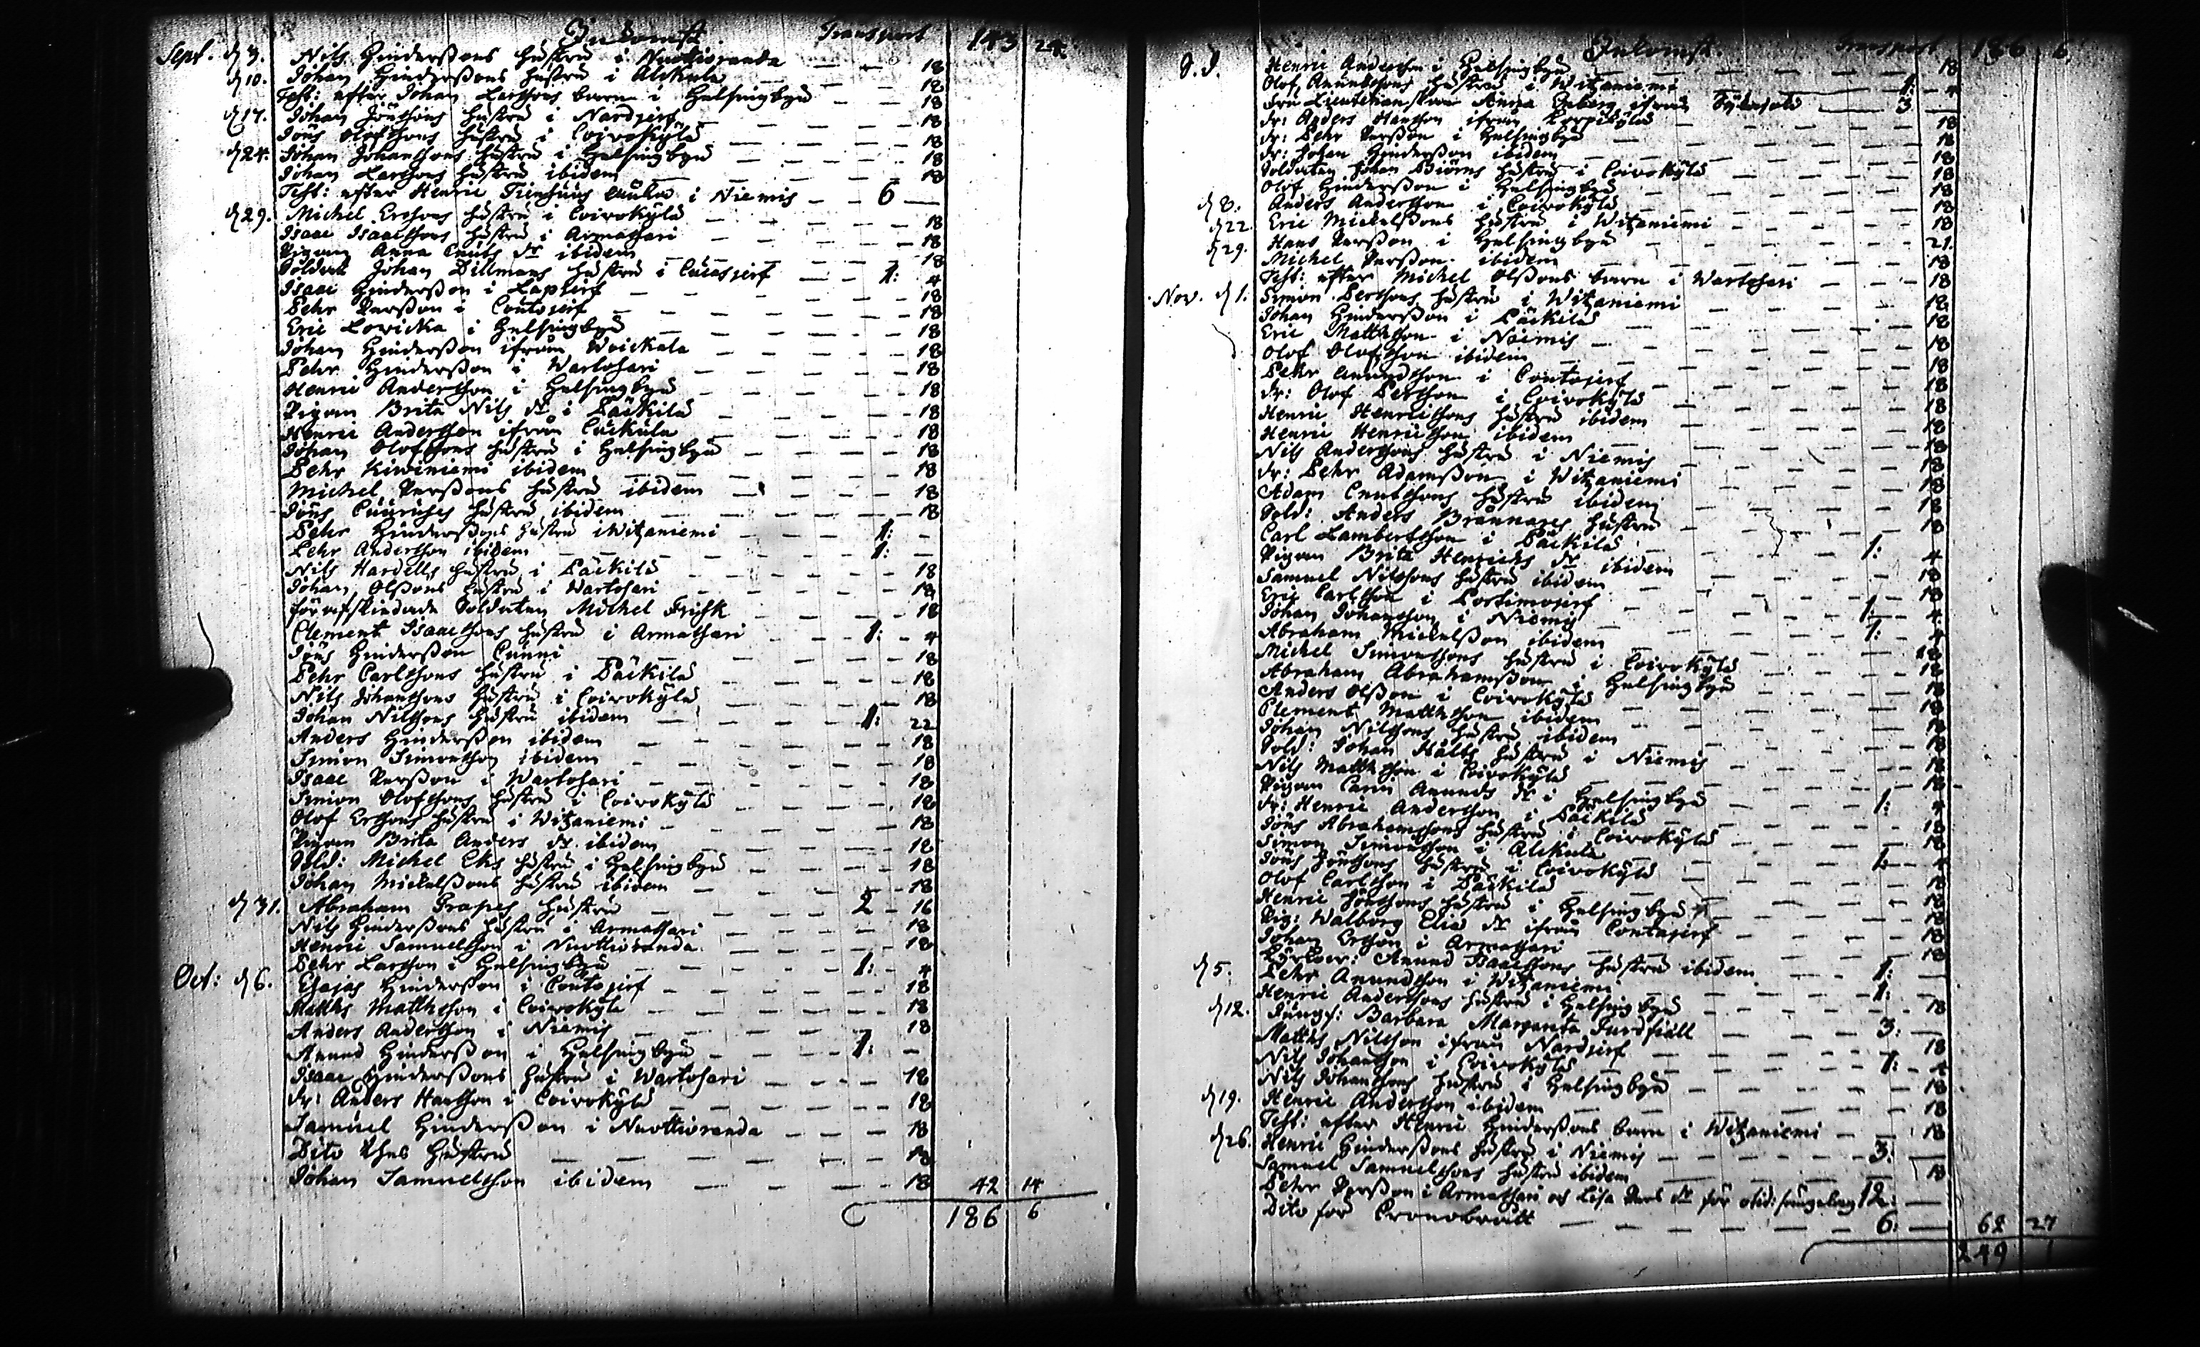 Inkomst Transport 143 24.
Sept. d 3. Nils Hinderßons hustru i Nuottioranda — 18
d 10. Johan Hinderßons hustru i Alckula — 18
Test: efter Johan Larssons barn i Helsingbyn — 18
d 17. Johan Jönssons hustru i Nardjerf — 18
Jöns Olofssons hustru i Coivokylä — 18
d 24. Johan Johanssons hustru i Helsingbyn — 18
Johan Larssons hustru ibidem — 18
Test: efter Henric i Niemis — 6 —
d 29. Michel Ersons hustru i Coivokylä — 18
Isaac Isaacssons hustru i Armassari — 18
Pigan Anna Cnuts dr ibidem — 18
Soldat Johan Dillmans hustru i Cuccasjerf — 1: 4
Isaac Hinderßon i — 18
Pehr Perßon i Contojerf — 18
Eric Lovicka i Helsingbyn — 18
Johan Hinderßon ifrån Woickala — 18
Pehr Hinderßon i Wartosari — 18
Henric Andersson i Helsingbyn — 18
Pigan Brita Nils dr i Päckilä — 18
Henric Andersson ifrån — 18
Johan Olofssons hustru i Helsingbyn — 18
Pehr Kiwiniemi ibidem — 18
Michel Perßons hustru ibidem — 18
Jöns hustru ibidem — 18
Pehr Hinderßons hustru i Witzaniemi — 1: —
Pehr Andersson ibidem — 1: —
Nils Hardells hustru i Päckilä — 18
Johan Olßons hustru i Wartosari — 18
för afskiedade Soldaten Michel Frisk — 18
Clement Isaacssons hustru i Armassari — 1: 4
Jöns Hinderßon Cunni — 18
Pehr Carlssons hustru i Päckilä — 18
Nils Johanssons hustru i Coivokylä — 18
Johan Nilssons hustru ibidem — 1: 22
Anders Hinderßon ibidem — 18
Simon Simonsson ibidem — 18
Isaac Perßon i Wartosari — 18
Simon Olofssons hustru i Coivokylä — 18
Olof Ersons hustru i Witzaniemi — 18
Pigan Brita Anders dr. ibidem — 18
Sold: Michel Eks hustru i Helsingbyn — 18
Johan Mickelßons hustru ibidem — 18
d 31. Abraham Frapes hustru — 2 — 16
Nils Hinderßons hustru i Armassari — 18
Henric Samuelsson i Nuottioranda — 18
Pehr Larsson i Helsingbyn — 1: 4
Oct: d 6. Esajas Hinderßon i Contojerf — 18
Matths Matthsson i Coivokyla — 18
Anders Andersson i Niemis — 18
Anund Hinderßon i Helsingbyn — 1: —
Isaac Hinderßons hustru i Wartosari — 18
Dr: Anders Hansson i Coivokylä — 18
Samuel Hinderßon i Nuottioranda — 18
Dito thes Hustru — 18
Johan Samuelsson ibidem — 18 42 14
186 6
Inkomst. Transport 186 6.
Henric Andersson i Helsingbyn — 18
Olof Anundssons hustru i Witzaniemi — 1: 4
Fru Lieutenanskan Anna Enberg ifrån — 3 —
Dr: Anders Hansson ifrån Korpikylä — 18
Dr: Pehr Perßon i Helsingbyn — 18
Dr: Johan Hinderßon ibidem — 18
Soldaten Johan Biörns hustru i Coivokylä — 18
Olof Hinderßon i Helsingbyn — 18
d 8. Anders Andersson i Coivokylä — 18
d 22. Eric Mickelßons hustru i Witzaniemi — 18
d 29. Hans Perßon i Helsingbyn — 21.
Michel Perßon ibidem — 18
Test: efter Michel Olßons barn i Wartosari — 18
Nov. d 1. Simon Perssons hustru i Witzaniemi — 18
Johan Hinderßon i Päckilä — 18
Eric Matthsson i Niemis — 18
Olof Olofsson ibidem — 18
Pehr Anundsson i Contojerf — 18
Dr: Olof Persson i Coivokylä — 18
Henric Henricssons hustru ibidem — 18
Henric Henricsson ibidem — 18
Nils Anderssons hustru i Niemis — 18
Dr: Pehr Adamßon i Witzaniemi — 18
Adam Cnutssons hustru ibidem — 18
Sold: Anders Brännares hustru — 18
Carl Lambertsson i Päckilä — 1: 4
Pigan Brita Henrichs dr ibidem — 18
Samuel Nilssons hustru ibidem — 18
Eric Carlsson i Portimojerf — 1: 4
Johan Johansson i Niemis — 1: 4
Abraham Mickelßon ibidem — 18
Michel Simonssons hustru i Coivokylä — 18
Abraham Abrahamßon i Helsingbyn — 18
Anders Olßon i Coivokylä — 18
Clement Matthsson ibidem — 18
Johan Nilssons hustru ibidem — 18
Sold: Johan Hälls hustru i Niemis — 18
Nils Matthsson i Coivokylä — 18
Pigan Carin Anunds dr i Helsingbyn — 1: 4
Dr: Henric Andersson i Päckilä — 18
Jöns Abrahamssons hustru i Coivokylä — 18
Simon Simonsson i Alckula — 1: 4
Jöns Jönssons hustru i Coivokylä — 18
Olof Carlsson i Päckilä — 18
Henric Jönssons hustru i Helsingbyn — 18
Pig: Walborg Elia dr ifrån Contojerf — 18
Johan Ersson i Armassari — 18
Anund Isaacssons hustru ibidem — 1: —
d 5. Pehr Anundsson i Witzaniemi — 1: —
Henric Anderssons hustru i Helsingbyn — 18
d 12. Jungf: Barbara Margareta — 3: —
Matths Nilsson ifrån Nardjerf — 18
Nils Johansson i Coivokylä — 1: 4
Nils Johanssons hustru i Helsingbyn — 18
d 19. Henric Andersson ibidem — 18
Test: efter Henric Hinderßons barn i Witzaniemi — 18
d 26. Henric Hinderßons hustru i Niemis — 3: —
Samuel Samuelssons hustru ibidem — 18
Pehr Perßon i Armassari och Lisa Pers dr för 12: —
Dito för Cronobrått — 6: — 62 27
249 1